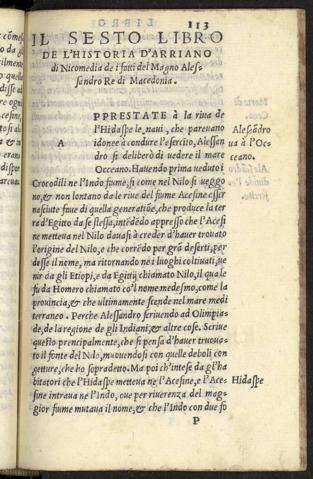 113
IL SESTO LIBRO
DE L'HISTORIA D'ARRIANO
di Nicomedia de i fatti del Magno Ales-
sandro Re di Macedonia.
APPRESTATE à la riua de
l'Hidaspe le naui, che pareuano
idonee à condure l'esercito, Alessan
dro si deliberò di uedere il mare
Occeano. Hauendo prima ueduto i
Crocodili ne l'Indo fiume, si come nel Nilo si ueggo
no, & non lontano da le riue del fiume Acesine esser
nasciute faue di quella generatiõe, che produce la ter
ra d'Egitto da se stessa, intẽdẽdo appresso che l'Acesi
ne metteua nel Nilo dauasi à creder d'hauer trouato
l'origine del Nilo, e che corrẽdo per grã deserti, per-
desse il nome, ma ritornando ne i luoghi coltiuati, ue
nir da gli Etiopi, e da Egittij chiamato Nilo, il qual e
fu da Homero chiamato cò'l nome medesmo, come la
prouincia, & che ultimamente scende nel mare medi
terraneo. Perche Alessandro scriuendo ad Olimpia-
de, de la regione de gli Indiani, & altre cose. Scriue
questo prencipalmente, che si pensa d'hauer truoua-
to il fonte del Nilo, muouendosi con quelle deboli con
getture, che ho sopradetto. Ma poi ch'intese da gl'ha
bitatori che l'Hidaspe metteua ne l'Acesine, e l'Ace-
sine intraua ne l'Indo, oue per riuerenza del mag-
gior fiume mutaua il nome, & che l'Indo con due fo
P
Alesãdro
ua à l'Oc
ceano.
Hidaspe